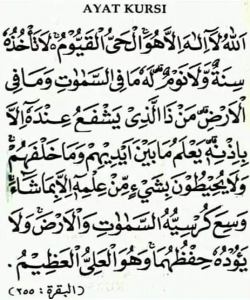 AYAT KURSI
اَللّٰهُ لَآ اِلٰهَ اِلَّا هُوَۚ اَلْحَيُّ الْقَيُّوْمُ ەۚ لَا تَأْخُذُهٗ
سِنَةٌ وَّلَا نَوْمٌۗ لَهٗ مَا فِى السَّمٰوٰتِ وَمَا فِى
الْاَرْضِۗ مَنْ ذَا الَّذِيْ يَشْفَعُ عِنْدَهٗٓ اِلَّا
بِاِذْنِهٖۗ يَعْلَمُ مَا بَيْنَ اَيْدِيْهِمْ وَمَا خَلْفَهُمْۚ
وَلَا يُحِيْطُوْنَ بِشَيْءٍ مِّنْ عِلْمِهٖٓ اِلَّا بِمَا شَاۤءَۚ
وَسِعَ كُرْسِيُّهُ السَّمٰوٰتِ وَالْاَرْضَۚ وَلَا
يَـُٔوْدُهٗ حِفْظُهُمَاۚ وَهُوَ الْعَلِيُّ الْعَظِيْمُ.
(البقرة : ٢٥٥)